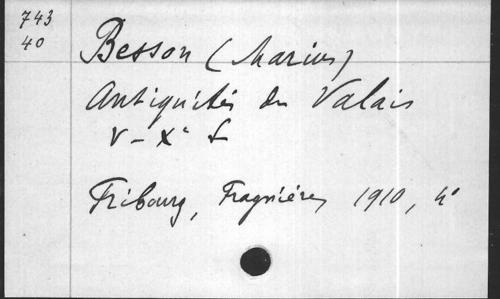 743
40
Besson (Marius)
Antiquités du Valais
V - Xe s
Fribourg, Fragnière, 1910, 4°